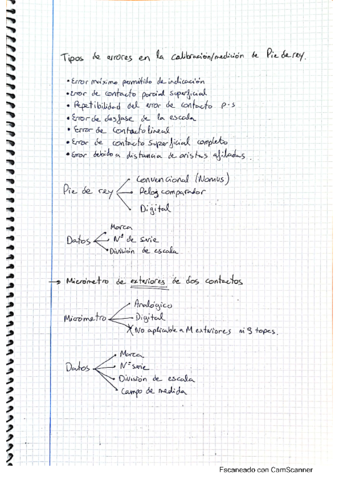 Tipos de errores en la calibración/medición de Pie de rey.
• Error máximo permitido de indicación
• Error de contacto parcial superficial
• Repetibilidad del error de contacto p-s
• Error de desfase de la escala
• Error de contacto lineal
• Error de contacto superficial completo
• Error debido a distancia de aristas afiladas.
Pie de rey
Convencional (Nonius)
Reloj comparador
Digital
Datos
Marca
Nº de serie
División de escala
→ Micrómetro de exteriores de dos contactos
Micrómetro
Analógico
Digital
No aplicable a M exteriores ni 3 topes.
Datos
Marca
Nº serie
División de escala
Campo de medida
Escaneado con CamScanner